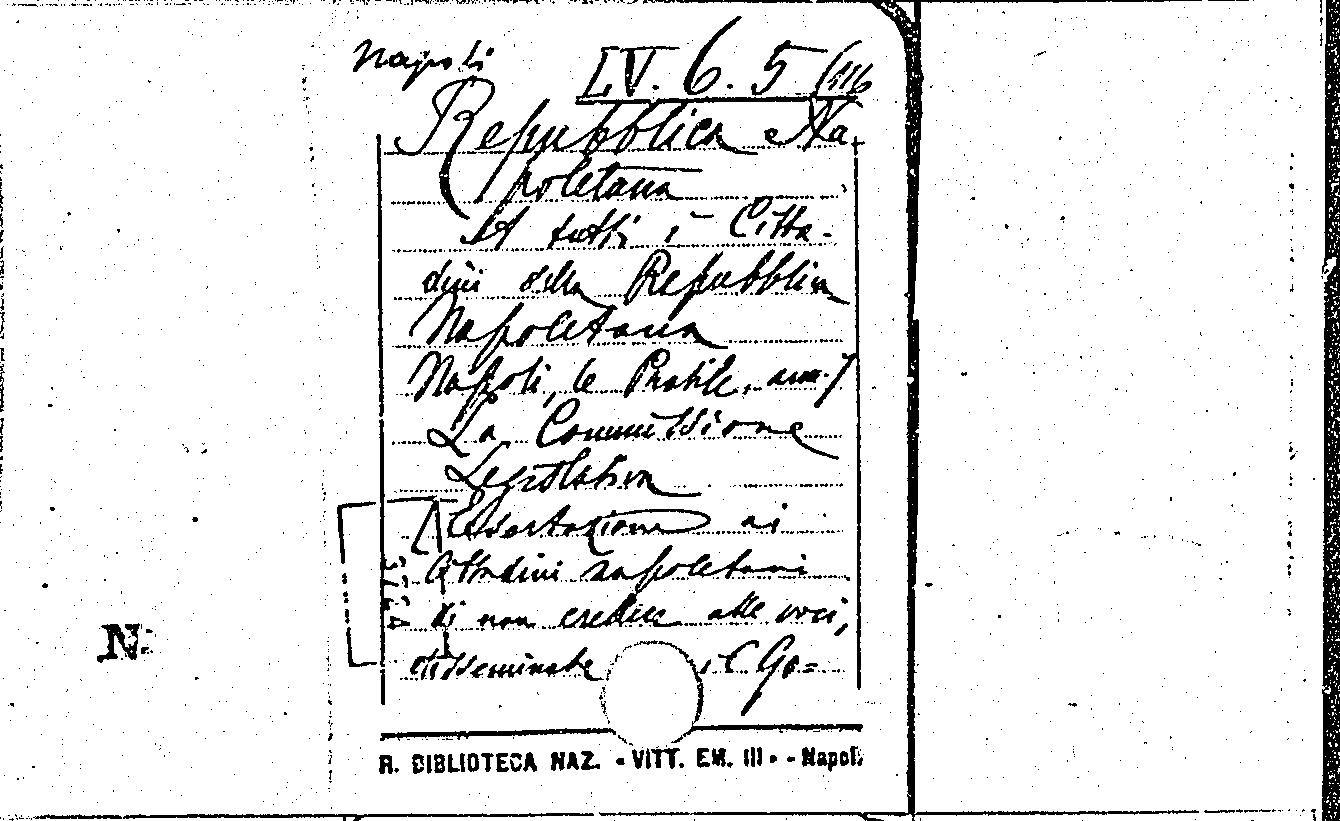 Napoli
LV. 6. 5 (116
Repubblica Na-
poletana
A tutti i Citta-
dini della Repubblica
Napoletana
Napoli, le Pratile, ann. 7
La Commissione
Legislativa
[Esortazione ai
Cittadini napoletani
di non credere alle voci,
disseminate il Go=
N.
R. BIBLIOTECA NAZ. - VITT. EM. III - - Napoli